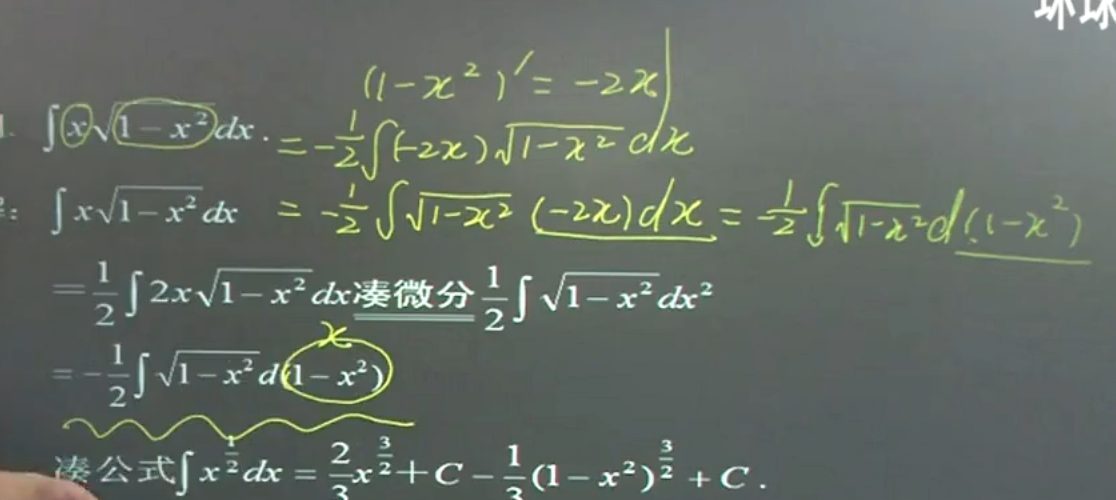 环球
(1-x²)′= -2x
1. ∫x√(1-x²)dx. = -1/2∫(-2x)√(1-x²)dx
: ∫x√(1-x²)dx = -1/2∫√(1-x²)(-2x)dx = -1/2∫√(1-x²)d(1-x²)
=1/2∫2x√(1-x²)dx凑微分1/2∫√(1-x²)dx²
x
=-1/2∫√(1-x²)d(1-x²)
凑公式∫x^(1/2)dx = 2/3x^(3/2)+C-1/3(1-x²)^(3/2)+C.